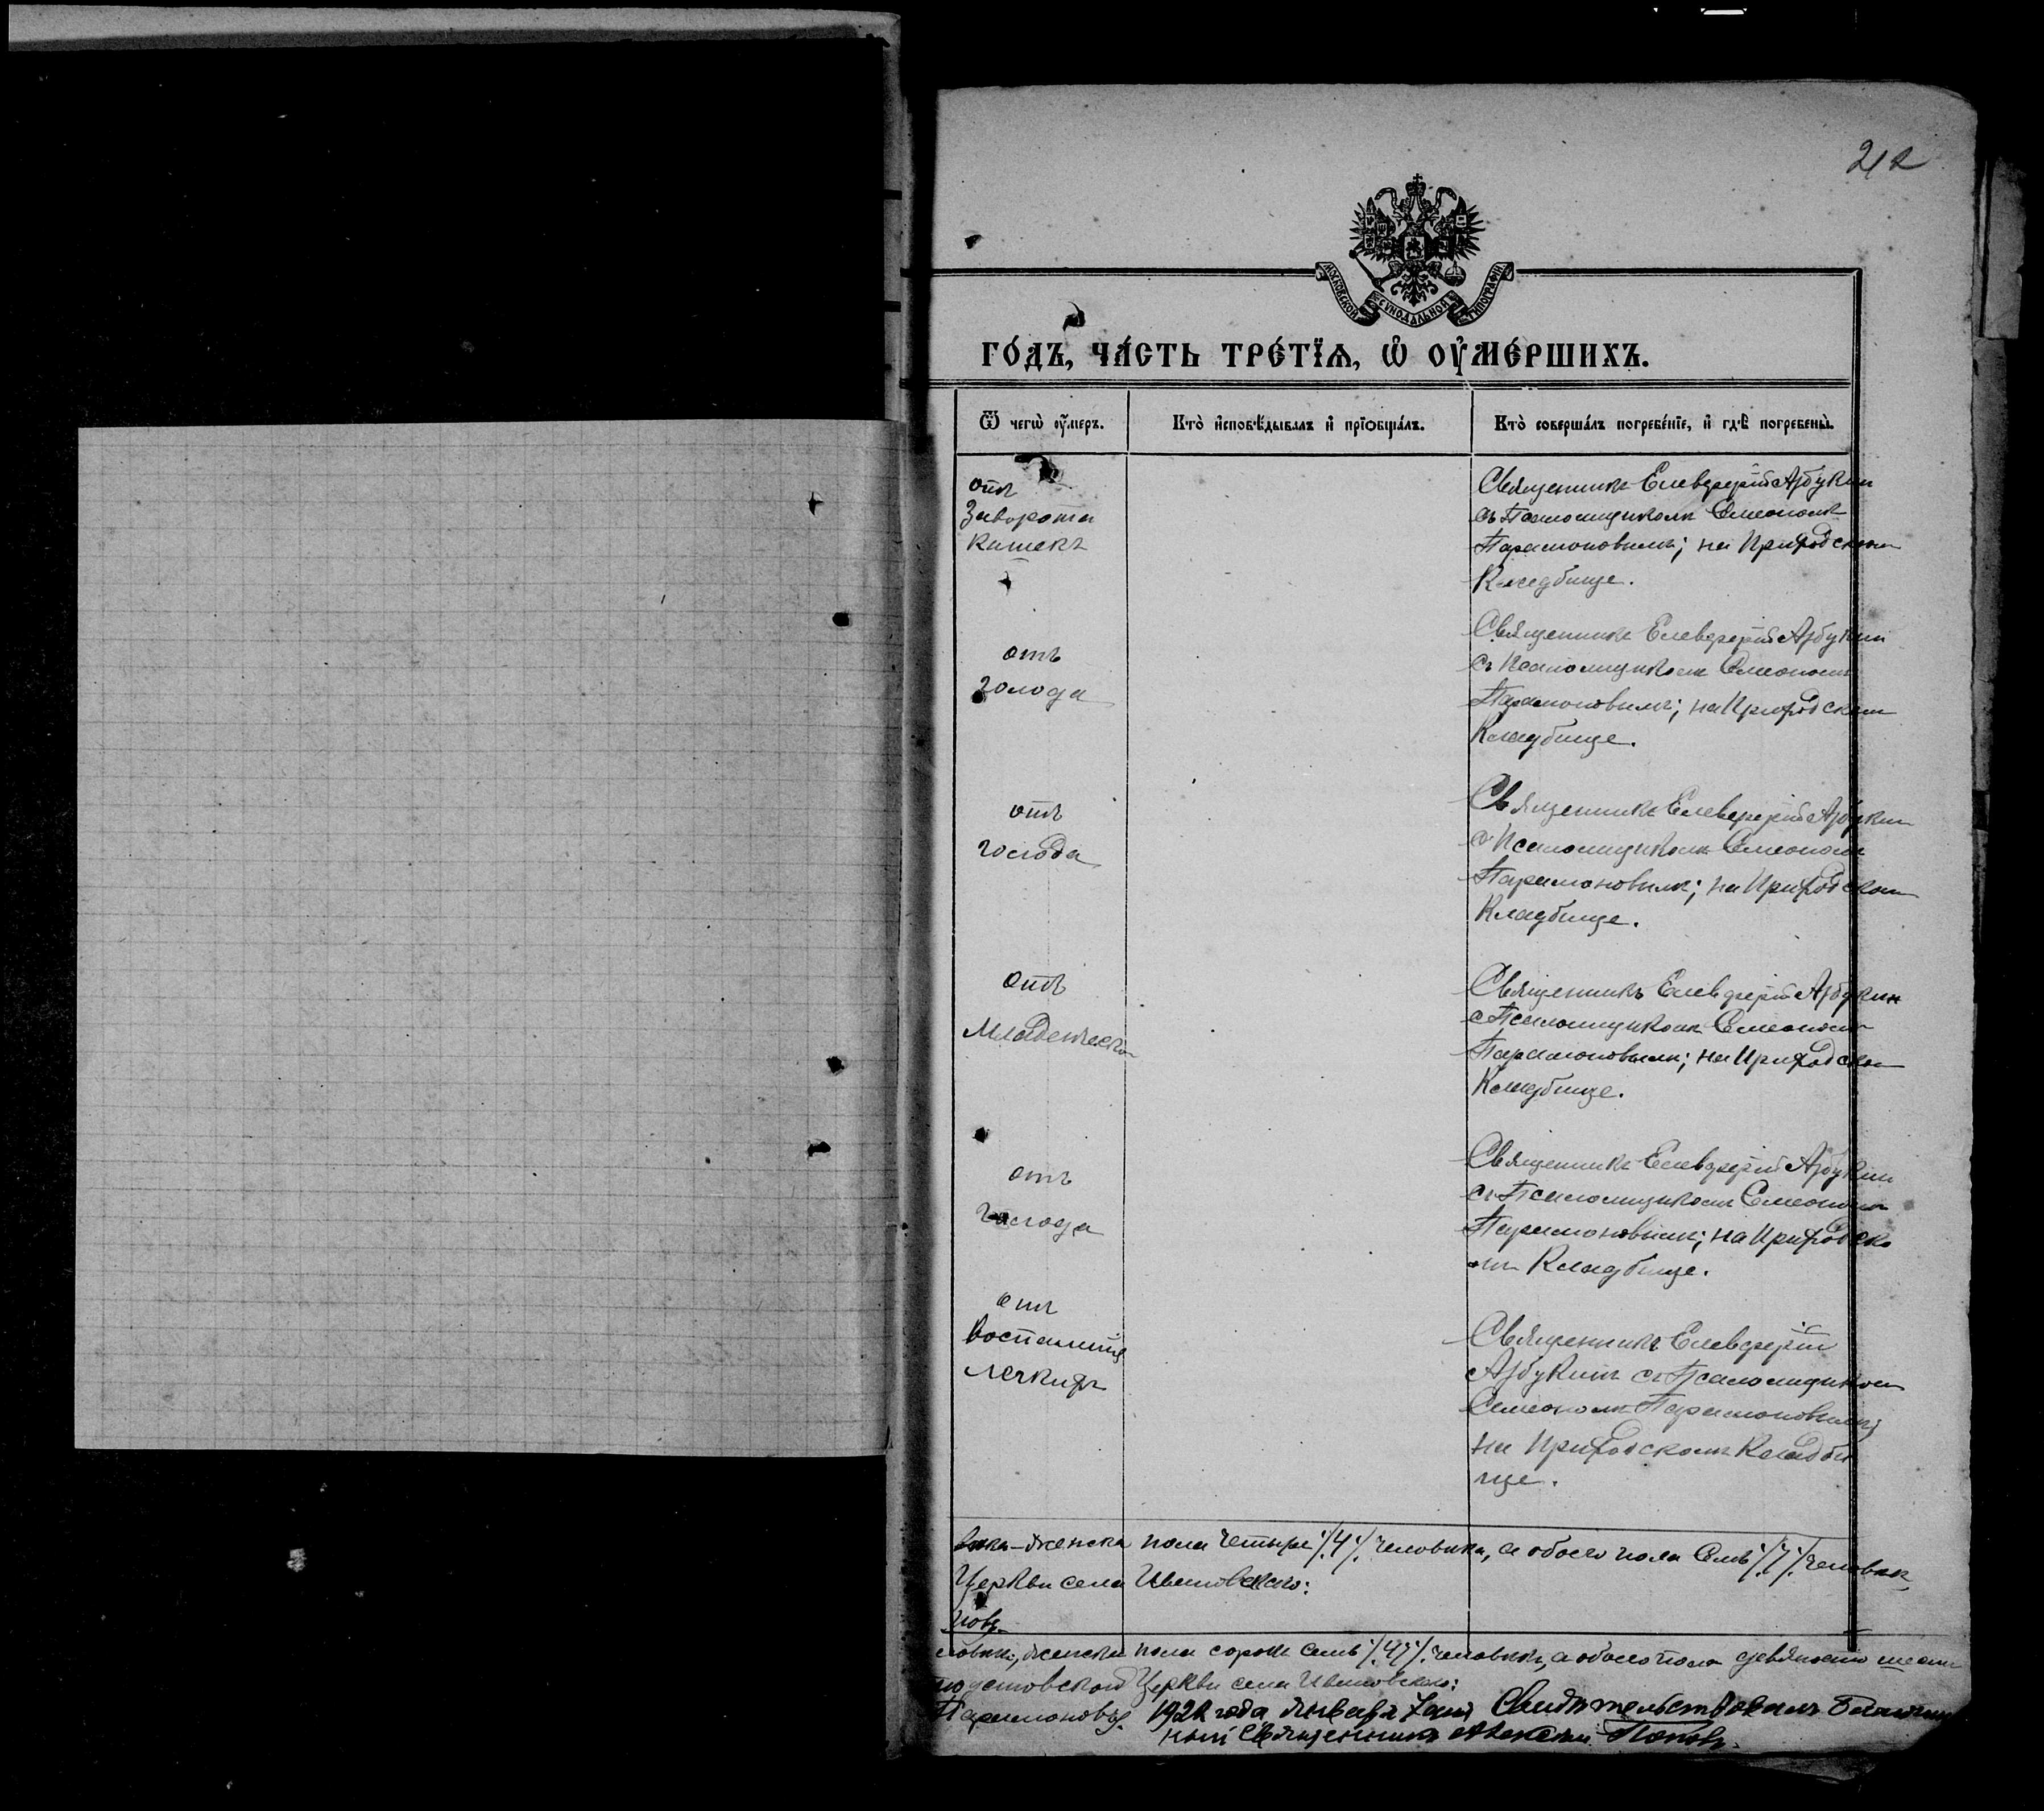 212
МОСКОВСКОЙ СѴНОДАЛЬНОЙ ТИПОГРАФІИ.
ГО́ДЪ, ЧА́СТЬ ТРЕ́ТЇѦ, Ѡ҆ ОУ҆МЕ́РШИХЪ.
Ѿ чегѡ̀ оу҆́меръ.
Кто̀ и҆сповѣ́дывалъ и҆ прїѡбща́лъ.
Кто̀ соверша́лъ погребе́нїе, и҆ гдѣ̀ погребены̀.
отъ
Заворота
Кишекъ
Священникъ Елевферій Арбукин
съ Псаломщикомъ Симеономъ
Парамоновымъ; на Приходском
Кладбище.
отъ
голода
Священникъ Елевферій Арбукин
съ Псаломщикомъ Симеономъ
Парамоновымъ; на Приходском
Кладбище.
отъ
голода
Священникъ Елевферій Арбукин
с Псаломщикомъ Симеономъ
Парамоновымъ; на Приходском
Кладбище.
отъ
Младенческой
Священникъ Елевферій Арбукин
с Псаломщикомъ Симеономъ
Парамоновымъ; на Приходском
Кладбище.
отъ
голода
Священникъ Елевферій Арбукин
съ Псаломщикомъ Симеономъ
Парамоновымъ; на Приходско
мъ Кладбище.
отъ
воспаленія
легкихъ
Священникъ Елевферій
Арбукинъ съ Псаломщиком
Симеономъ Парамоновымъ;
на Приходскомъ Кладби
ще.
века-женска пола четыре /4/ человека, а обоего пола Семь /7/ человек,
Церкви села Ивановского:
новъ
ловека, женска пола сорокъ семь /47/ человекъ, а обоего пола девяносто
Церкви села Ивановского:
Парамоновъ. 192 года Января 7 дня Свидѣтельствовалъ
ный Священникъ Алексій Поповъ.